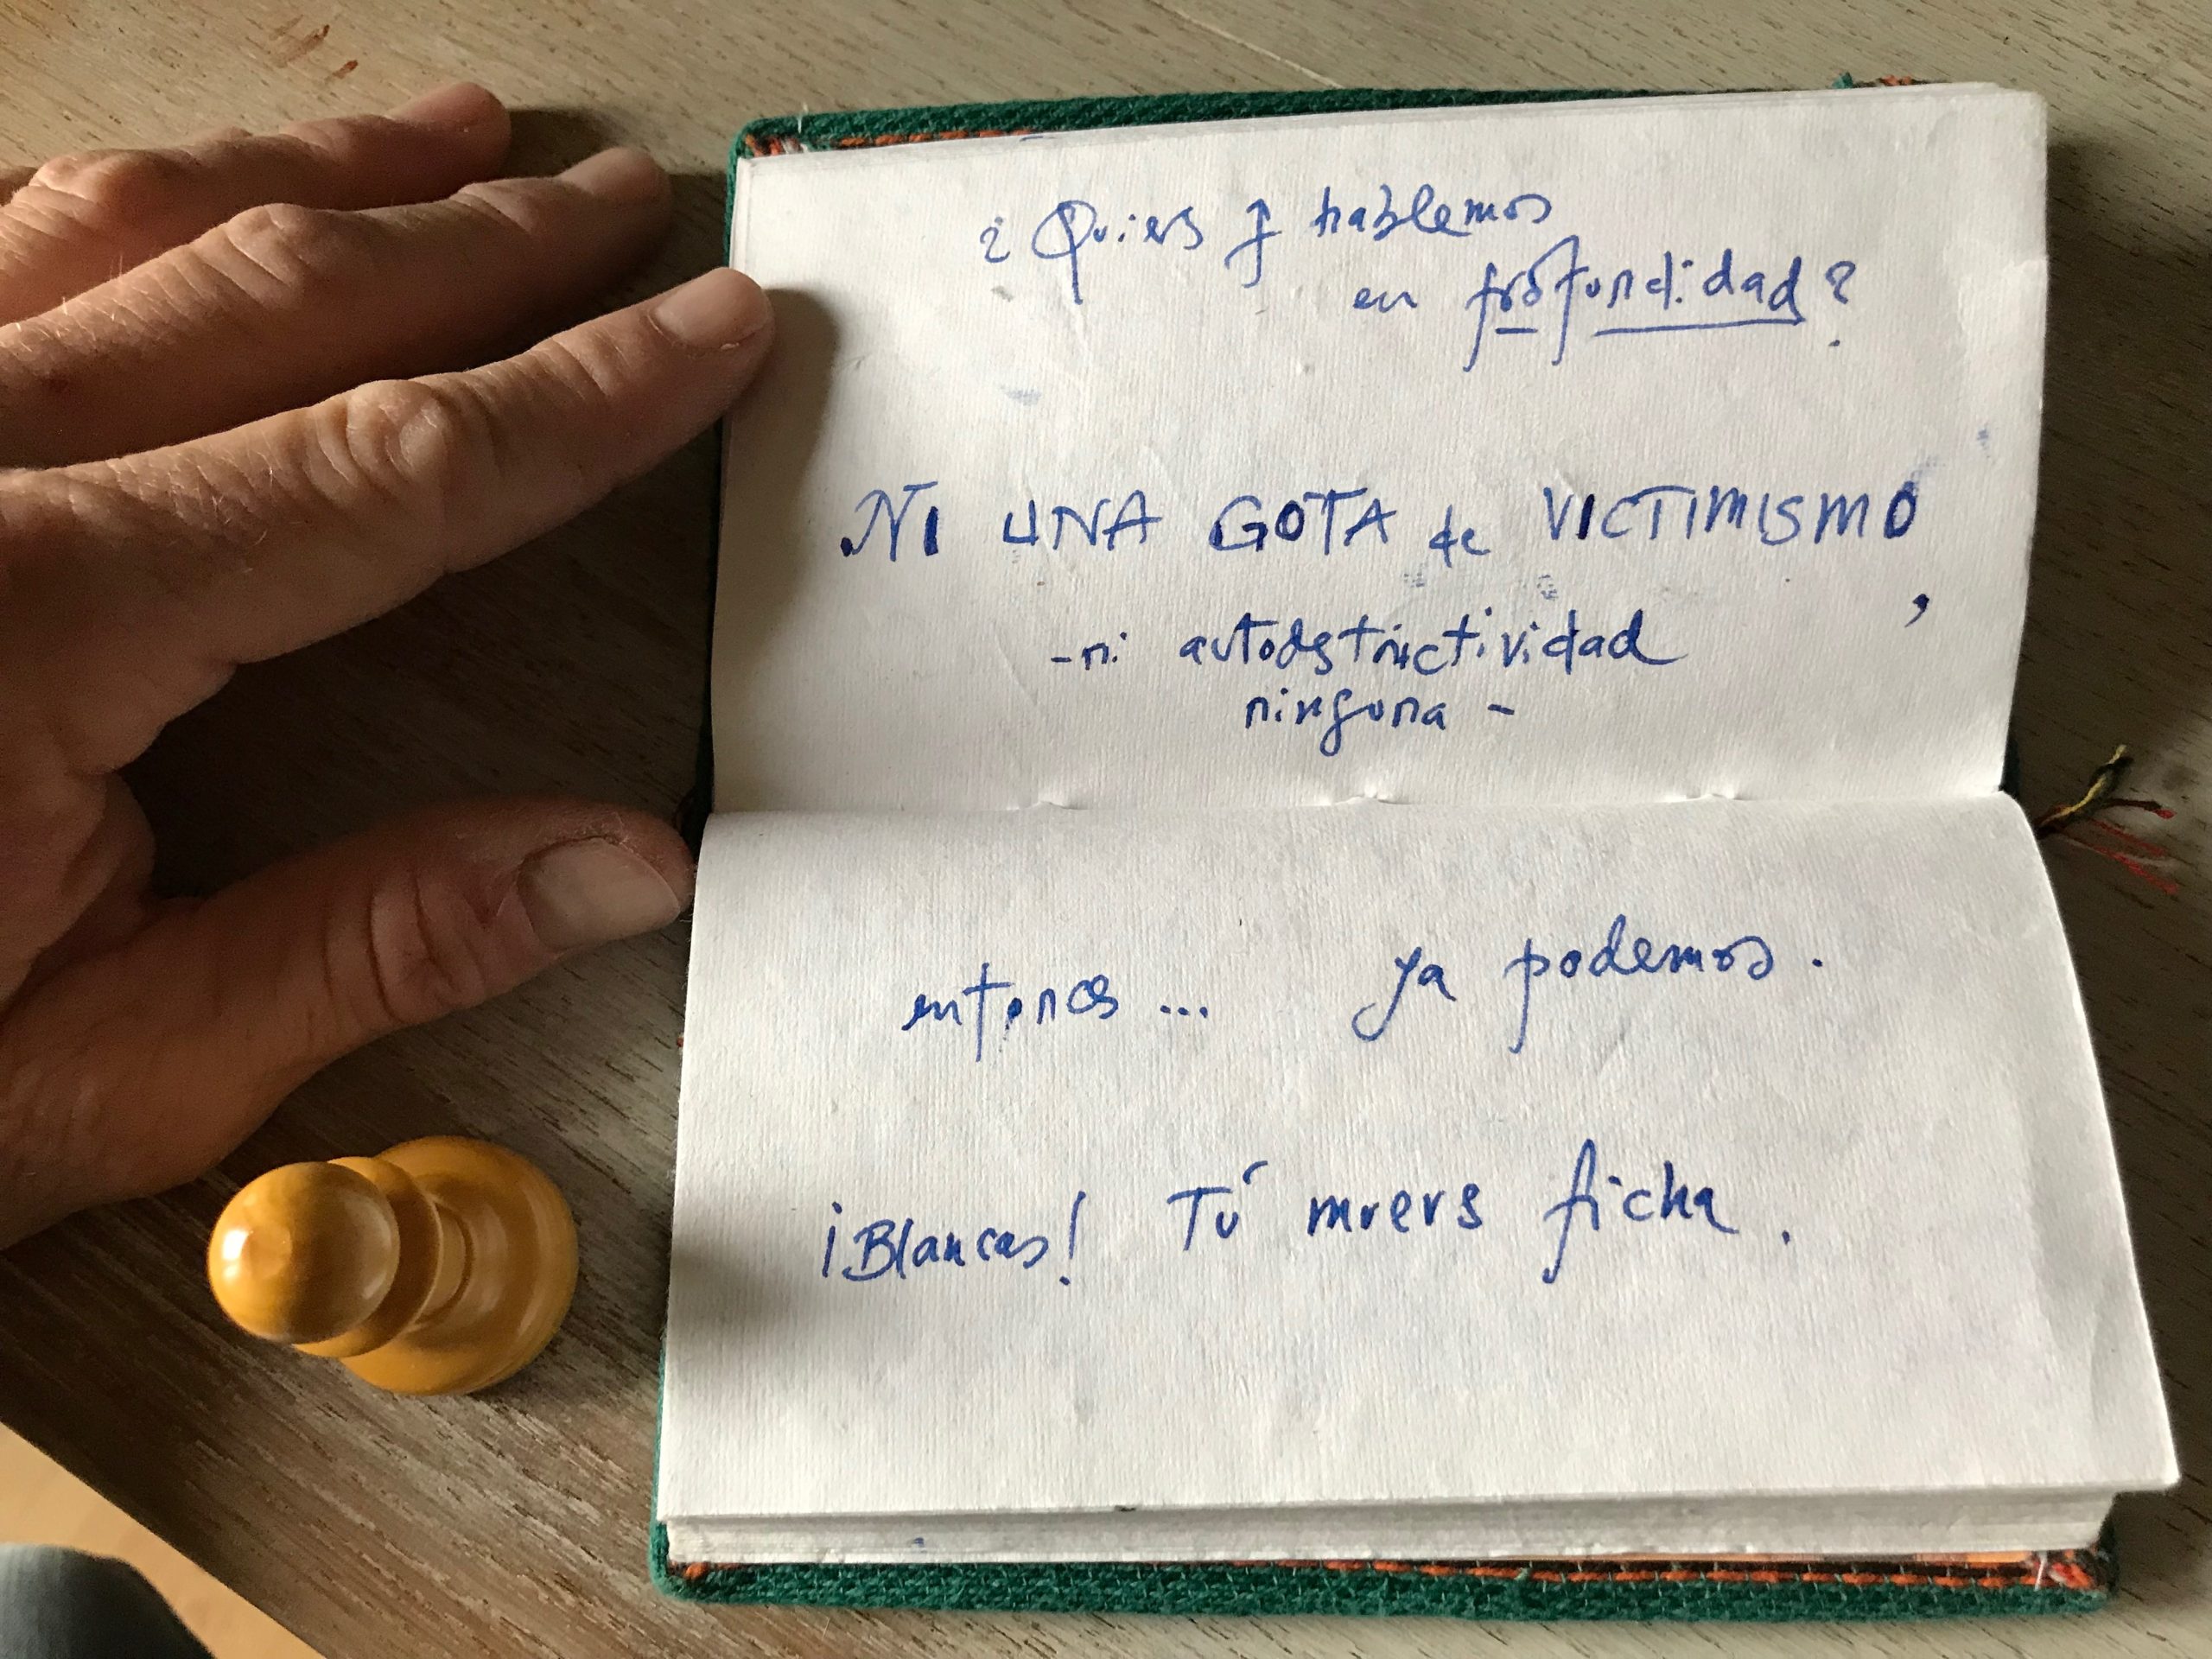 ¿Quieres q hablemos
en profundidad?
NI UNA GOTA de VICTIMISMO,
-ni autodestructividad
ninguna-
entonces... ya podemos.
¡Blancas! Tú mueves ficha.